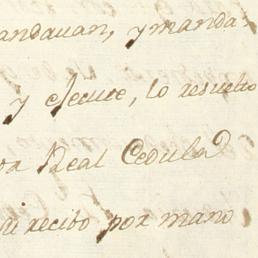 andavan, y manda=
y execute, lo resuelto
Real Cedula
recibo por mano